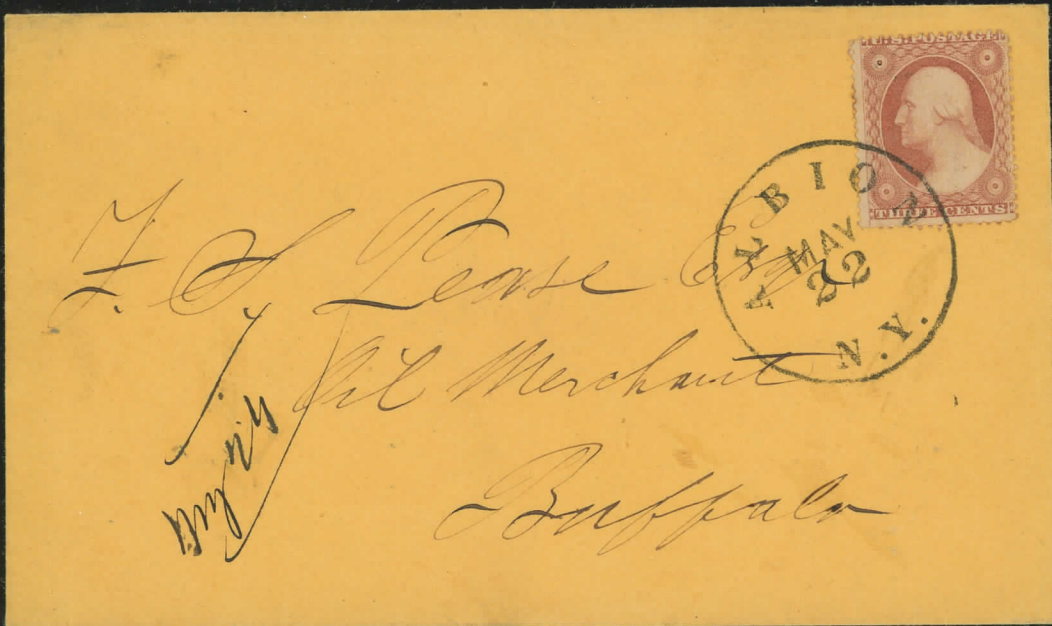 U.S. POSTAGE
THREE CENTS
ALBION
MAY
22
N.Y.
F. S. Pease Esq
Oil Merchant
Buffalo